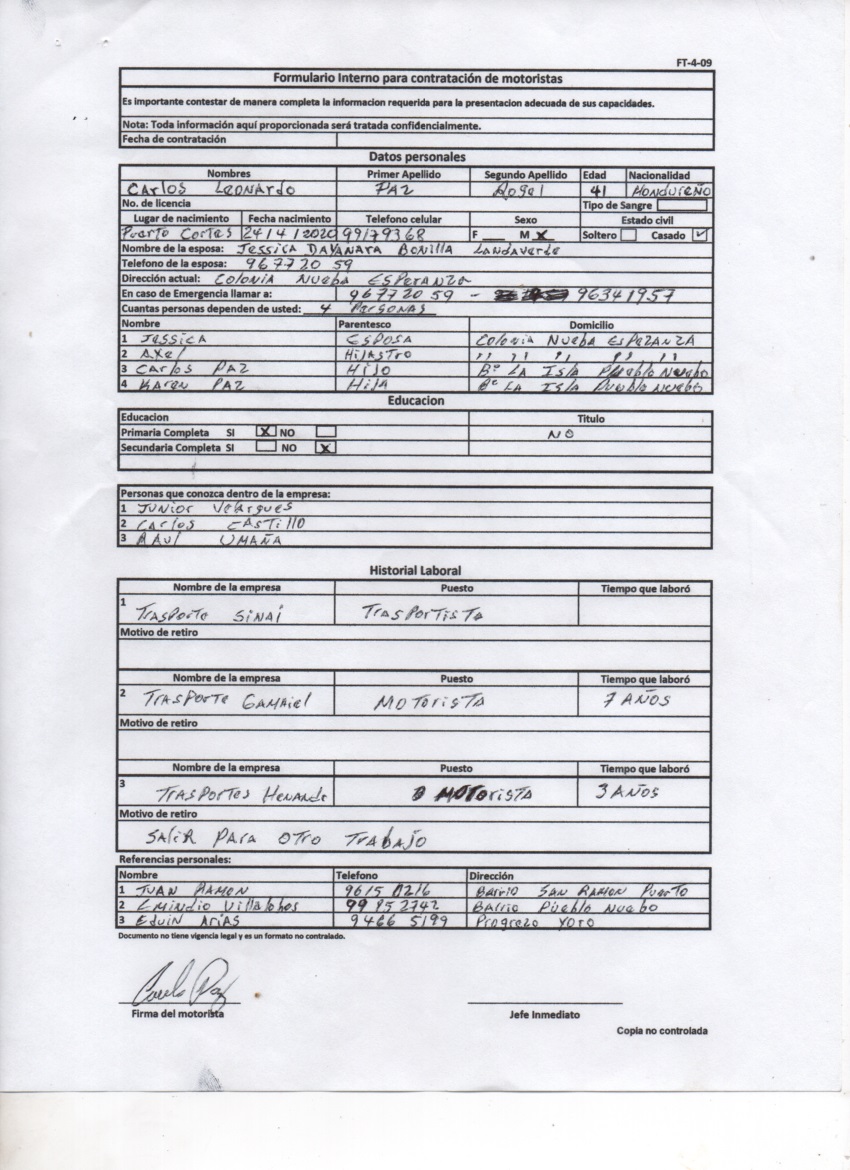 FT-4-09
Formulario Interno para contratación de motoristas
Es importante contestar de manera completa la informacion requerida para la presentacion adecuada de sus capacidades.
Nota: Toda información aquí proporcionada será tratada confidencialmente.
Fecha de contratación
Datos personales
Nombres Primer Apellido Segundo Apellido Edad Nacionalidad
Carlos Leonardo PAZ 41 HONDUREÑO
No. de licencia Tipo de Sangre
Lugar de nacimiento Fecha nacimiento Telefono celular Sexo Estado civil
Puerto Cortes 24/4/2020 99179368 F M X Soltero Casado ✓
Nombre de la esposa: Jessica DAYANARA BONILLA Landaverde
Telefono de la esposa: 967720 59
Dirección actual: COLONIA NUEBA ESPERANZA
En caso de Emergencia llamar a: 967720 59 - 96341957
Cuantas personas dependen de usted: 4 PERSONAS
Nombre Parentesco Domicilio
1 JESSICA ESPOSA COLONIA NUEBA ESPERANZA
2 AXEL HIJASTRO ,, ,, ,, ,, ,,
3 CARLOS PAZ HIJO Bº LA ISLA PUEBLO NUEBO
4 KAREN PAZ HIJA Bº LA ISLA PUEBLO NUEBO
Educacion
Educacion Titulo
Primaria Completa SI X NO NO
Secundaria Completa SI NO X
Personas que conozca dentro de la empresa:
1 JUNIOR
2 CARLOS CASTILLO
3 RAUL UMAÑA
Historial Laboral
Nombre de la empresa Puesto Tiempo que laboró
1 TRASPORTE SINAÍ TRASPORTISTA
Motivo de retiro
Nombre de la empresa Puesto Tiempo que laboró
2 TRASPORTE GAMALIEL MOTORISTA 7 AÑOS
Motivo de retiro
Nombre de la empresa Puesto Tiempo que laboró
3 TRASPORTES MOTORISTA 3 AÑOS
Motivo de retiro
SALIR PARA OTRO TRABAJO
Referencias personales:
Nombre Telefono Dirección
1 JUAN RAMON 9615 0216 Barrio SAN RAMON Puerto
2 Emindio Villalobos 99 852742 BARRIO PUEBLO NUEBO
3 EDUIN ARIAS 9466 5199 Progrezo YORO
Documento no tiene vigencia legal y es un formato no controlado.
Firma del motorista Jefe Inmediato
Copia no controlada